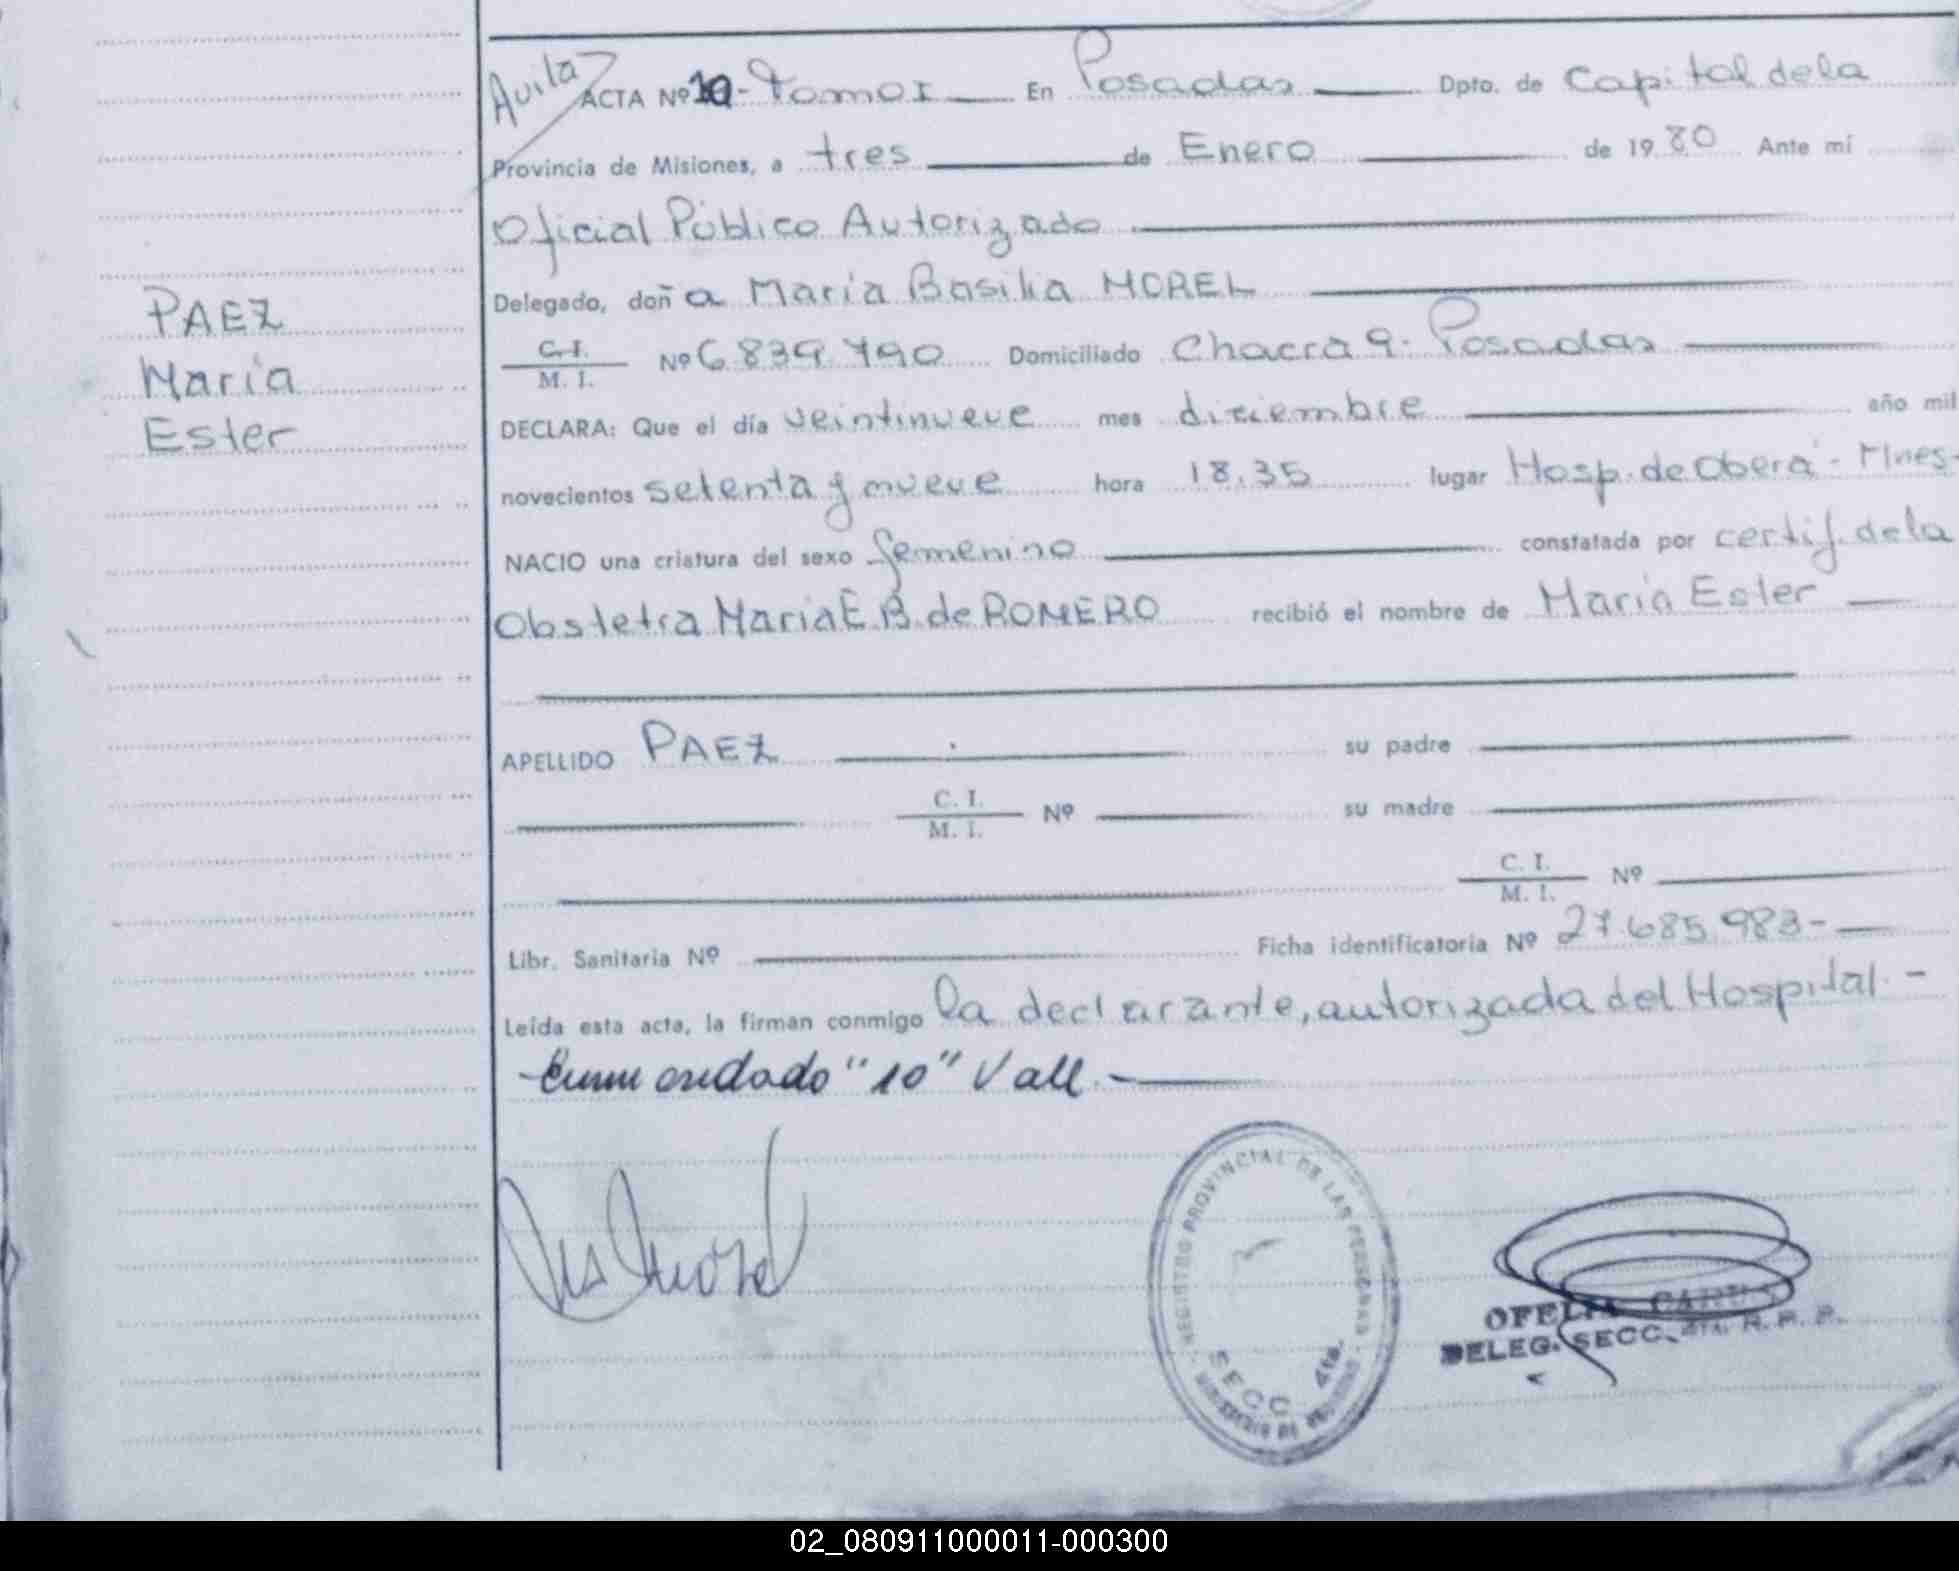 Avila
ACTA Nº 10 - Tomo I En Posadas Dpto. de Capital de la
Provincia de Misiones, a tres de Enero de 1980 Ante mí
Oficial Público Autorizado
Delegado, doña María Basilia MOREL
PAEZ
María
Ester
C. I.
M. I. Nº 6839790 Domiciliado Chacra 9. Posadas
DECLARA: Que el día veintinueve mes diciembre año mil
novecientos setenta y nueve hora 18,35 lugar Hosp. de Oberá - Mnes-
NACIO una criatura del sexo femenino constatada por certif. de la
Obstetra María E. B. de ROMERO recibió el nombre de María Ester
APELLIDO PAEZ su padre
C. I.
M. I. Nº su madre
C. I.
M. I. Nº
Libr. Sanitaria Nº Ficha identificatoria Nº 27.685.983-
Leída esta acta, la firman conmigo la declarante, autorizada del Hospital. -
- Enmendado "10" Vall. -
REGISTRO PROVINCIAL DE LAS PERSONAS
SECC. 4ta.
OFELIA
DELEG. SECC. 4ta. R. P. P.
02_080911000011-000300